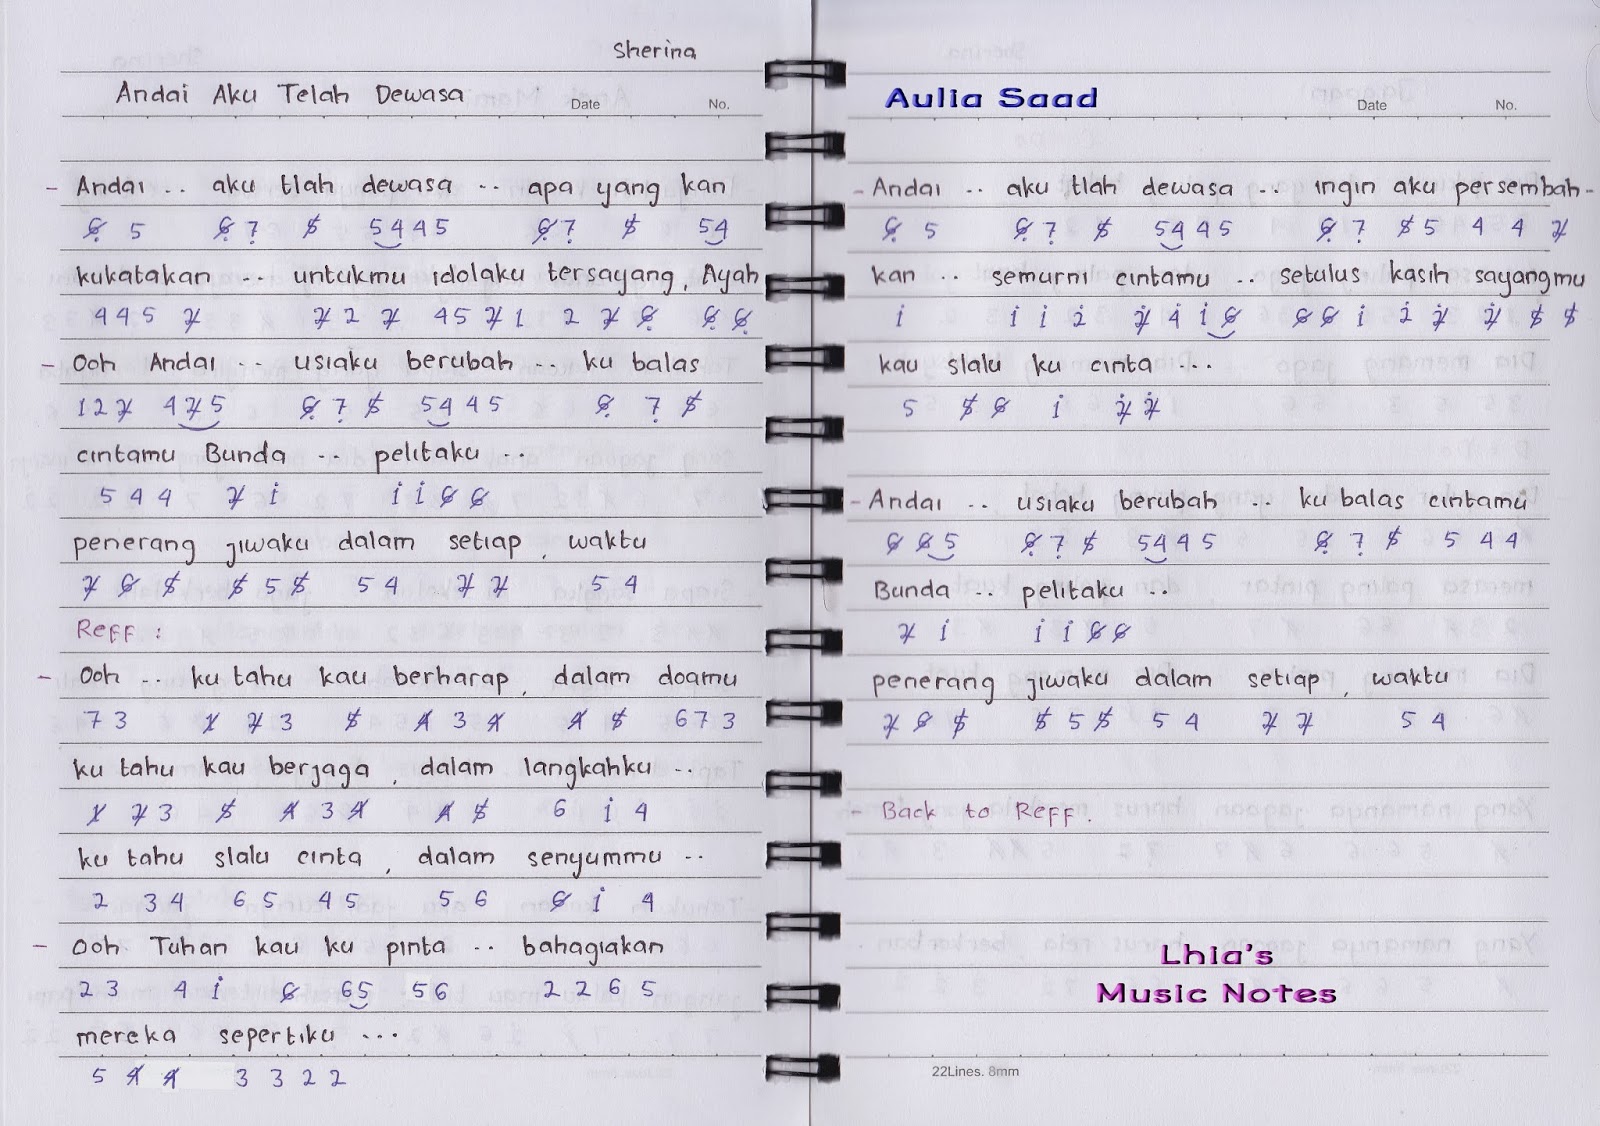 Sherina
Andai Aku Telah Dewasa
Date No.
- Andai .. aku tlah dewasa .. apa yang kan
6̸̣ 5 6̸̣ 7̣ 5̸ 5445 6̸̣ 7̣ 5̸ 54
kukatakan ... untukmu idolaku tersayang, Ayah
445 2̸ 2̸ 2 2̸ 45 2̸ 1 2 2̸ 6̸̣ 6̸̣ 6̸̣
- Ooh Andai .. usiaku berubah .. ku balas
12 2̸ 4 2̸ 5 6̸̣ 7̣ 5̸ 5445 6̸̣ 7̣ 5̸
cintamu Bunda .. pelitaku ..
544 2̸ i i i 6̸ 6̸
penerang jiwaku dalam setiap, waktu
2̸ 6̸ 5̸ 5̸ 5 5̸ 54 2̸ 2̸ 54
Reff :
- Ooh .. ku tahu kau berharap, dalam doamu
73 1̸ 2̸ 3 5̸ 4̸ 3 4̸ 4̸ 5̸ 673
ku tahu kau berjaga, dalam langkahku ..
1̸ 2̸ 3 5̸ 4̸ 3 4̸ 4̸ 5̸ 6 i 4
ku tahu slalu cinta, dalam senyummu ..
2 34 65 45 56 6̸ i 4
- Ooh Tuhan kau ku pinta .. bahagiakan
23 4 i 6̸ 65 56 2265
mereka sepertiku ...
5 4̸ 4̸ 3322
Aulia Saad
Date No.
- Andai .. aku tlah dewasa .. ingin aku persembah-
6̸̣ 5 6̸̣ 7̣ 5̸ 5445 6̸̣ 7̣ 5̸5 4 4 2̸
kan .. semurni cintamu .. setulus kasih sayangmu
i i i 2̇ 2̸̇ 4̇ i 6̸ 6̸ 6̸ i 2̇ 2̸̇ 2̸̇ 5̸ 5̸
kau slalu ku cinta ...
5 5̸ 6̸ i 2̸̇ 2̸̇
- Andai .. usiaku berubah .. ku balas cintamu
6̸̣ 6̸̣ 5 6̸̣ 7̣ 5̸ 5445 6̸̣ 7̣ 5̸ 544
Bunda .. pelitaku ..
2̸ i i i 6̸ 6̸
penerang jiwaku dalam setiap, waktu
2̸ 6̸ 5̸ 5̸ 5 5̸ 54 2̸ 2̸ 54
- Back to Reff.
Lhia's
Music Notes
22Lines. 8mm